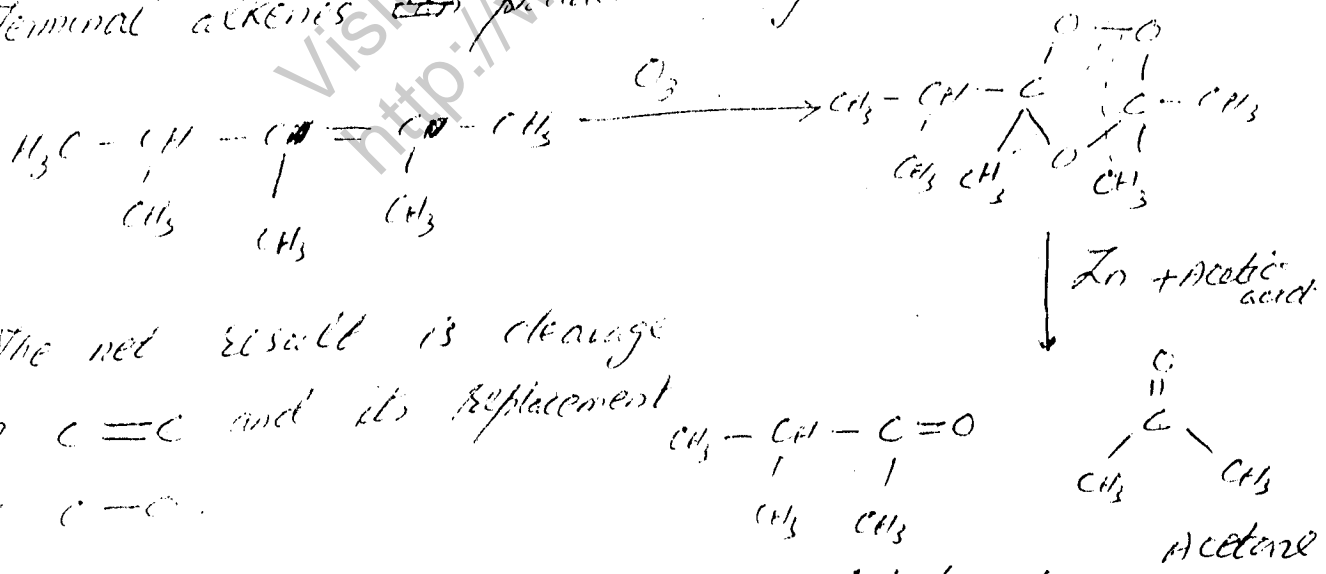 Terminal alkenes
http://
H₃C - CH - C = C - CH₃ O₃ CH₃ - CH - C O - O C - CH₃
CH₃ CH₃ CH₃ CH₃ CH₃ O CH₃
Zn + Acetic acid
The net result is cleavage
C = C and its replacement
CH₃ - CH - C = O
CH₃ CH₃
O
C
CH₃ CH₃
Acetone